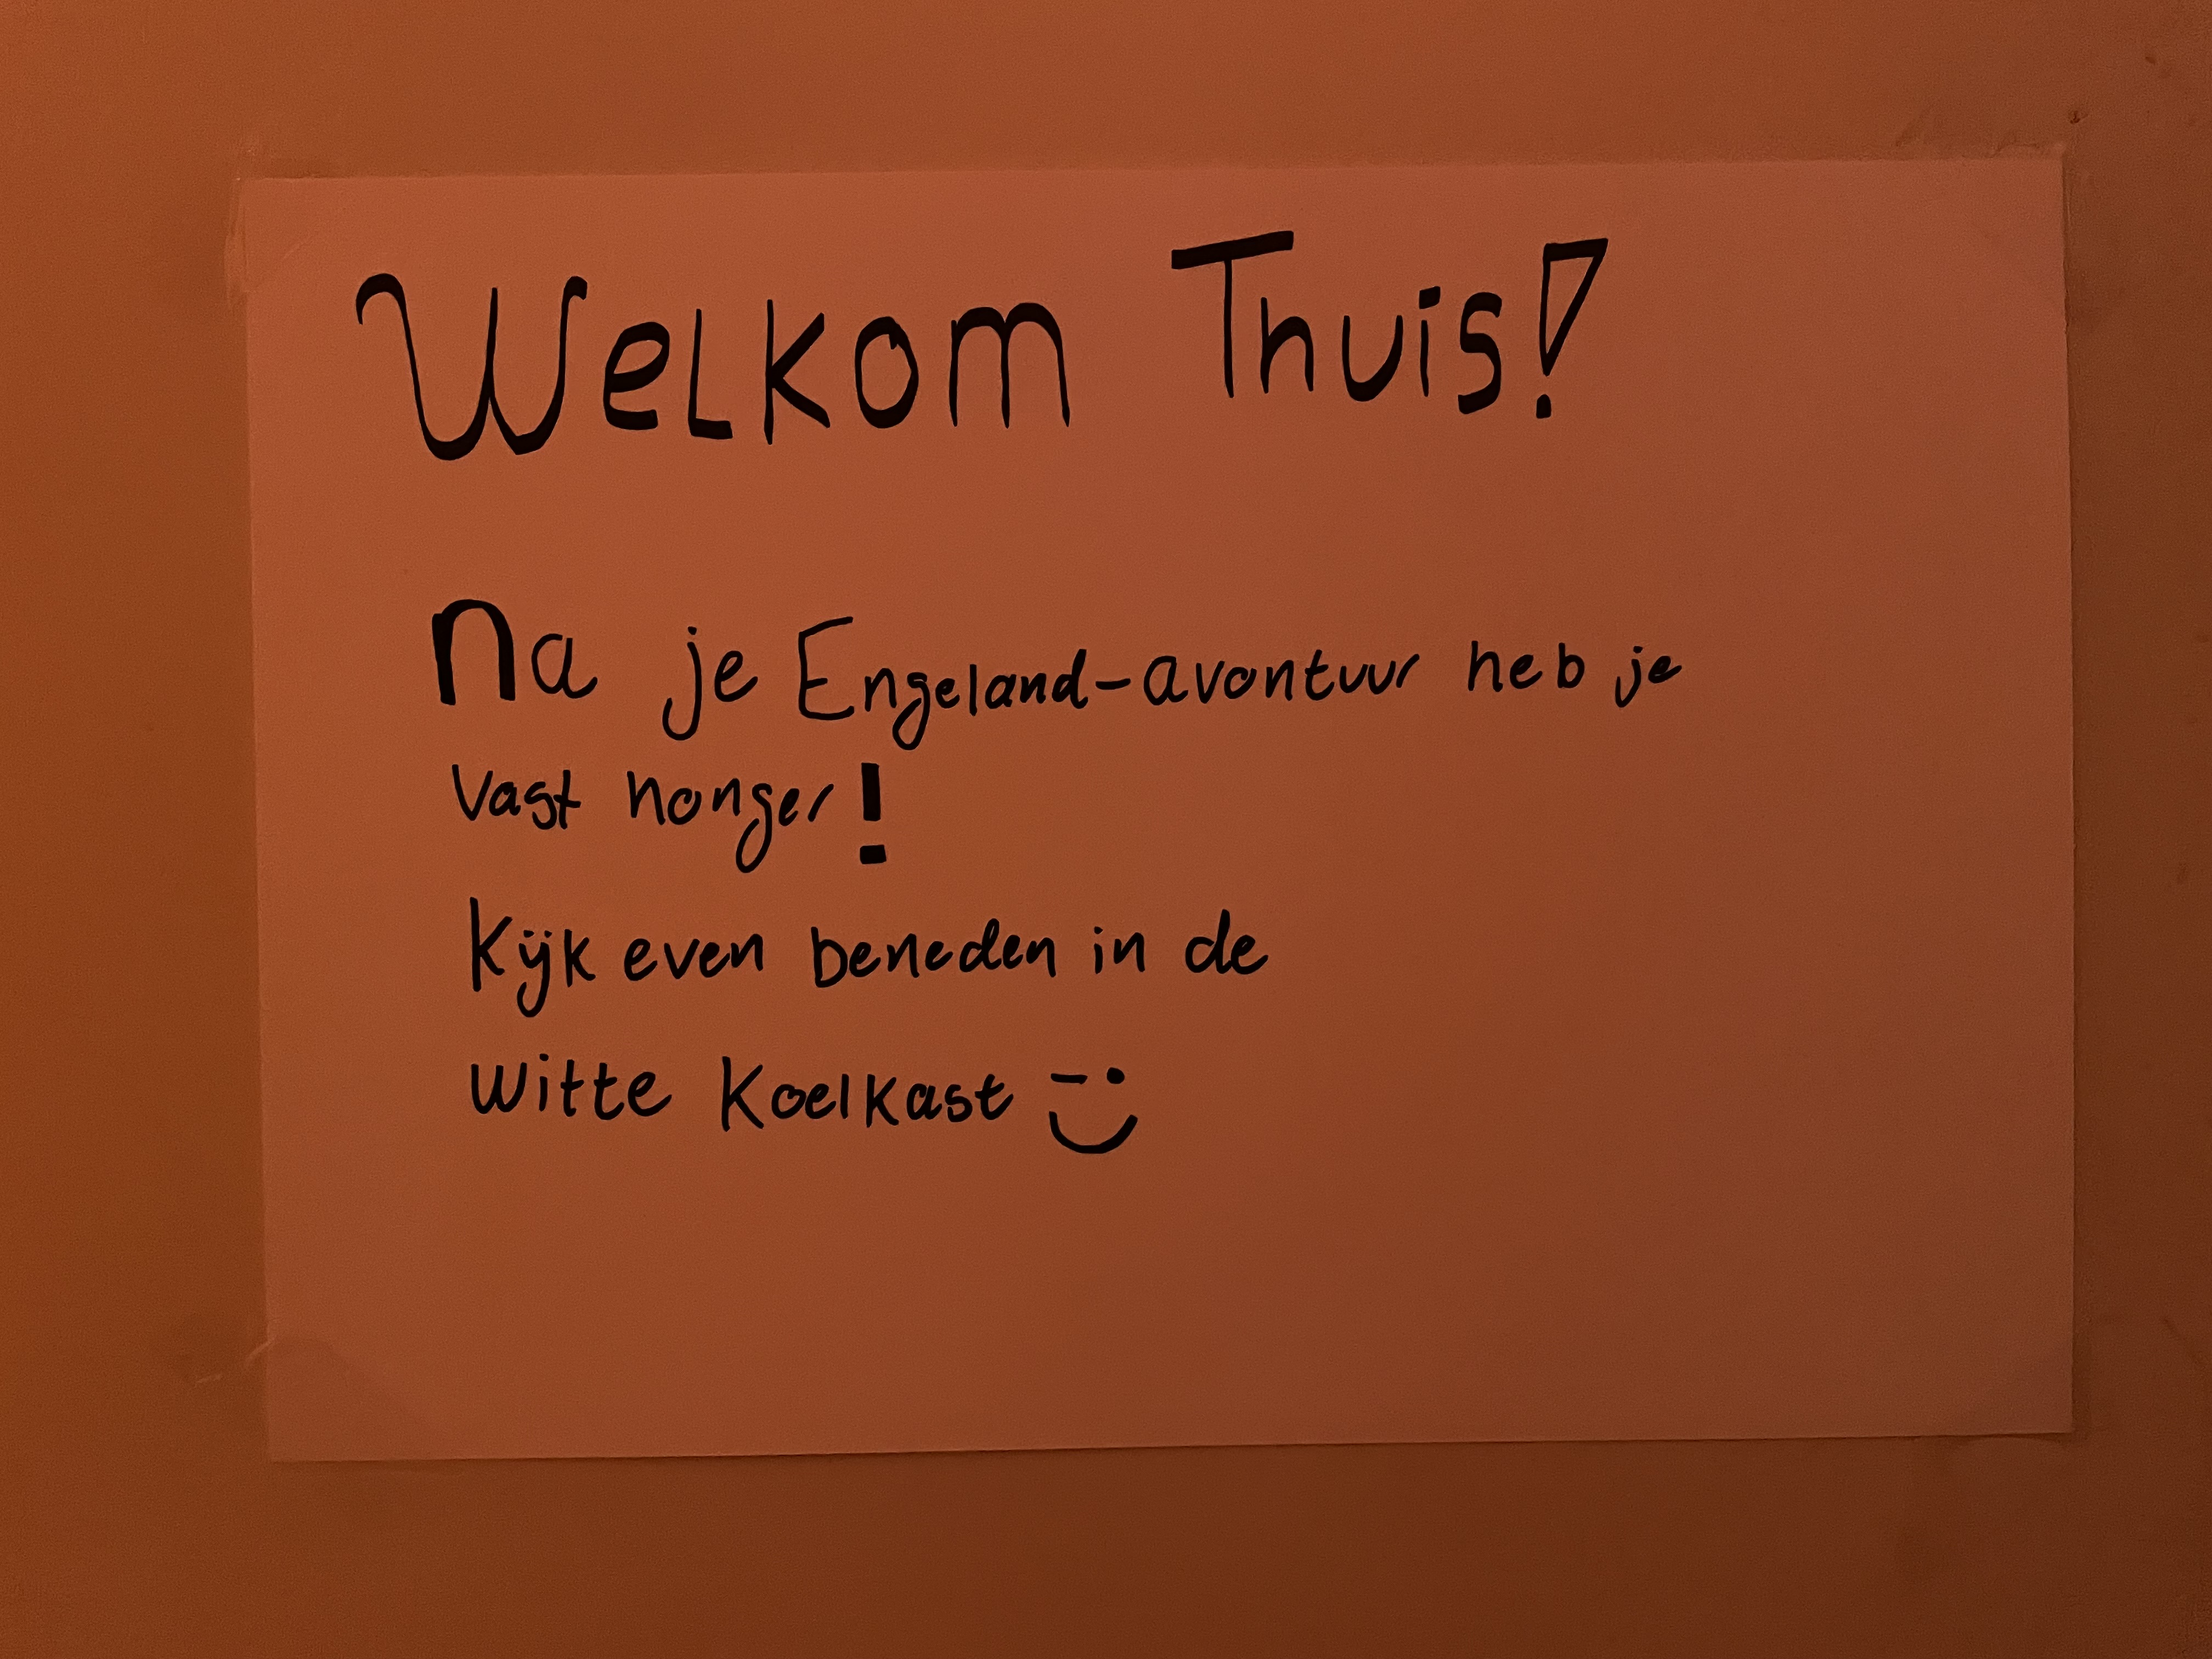 Welkom Thuis!
Na je Engeland-avontuur heb je
vast honger!
Kijk even beneden in de
witte Koelkast